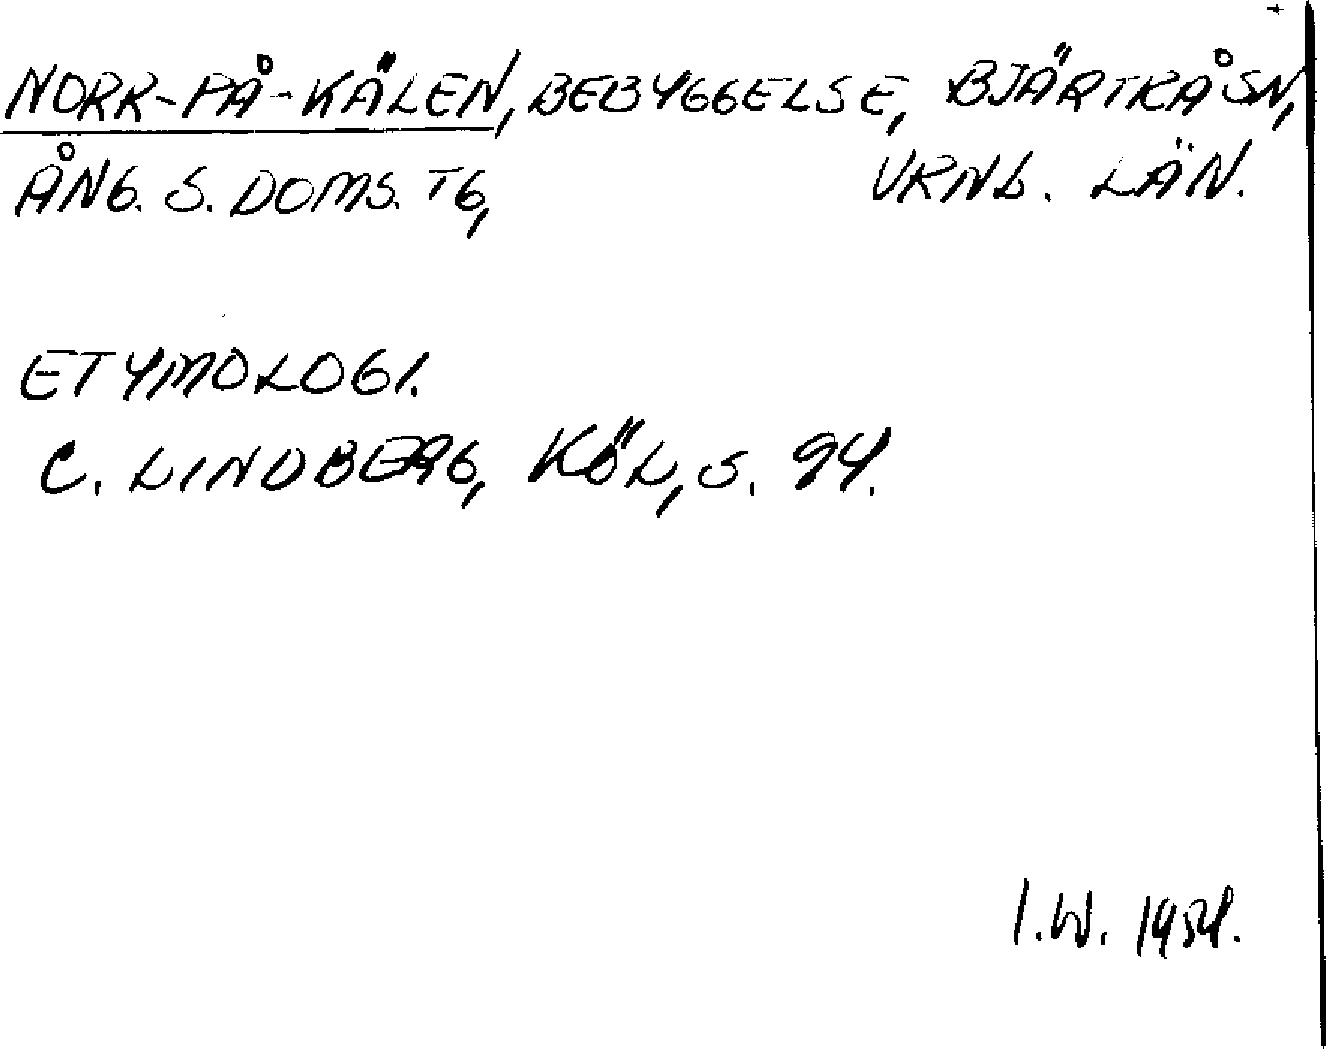 NORR-PÅ-KÄLEN, BEBYGGELSE, BJÄRTRÅ SN,
ÅNG. S. DOMS. TG, VRNL. LÄN.
ETYMOLOGI.
C. LINDBERG, KÖL, S. 94.
I.W. 1954.